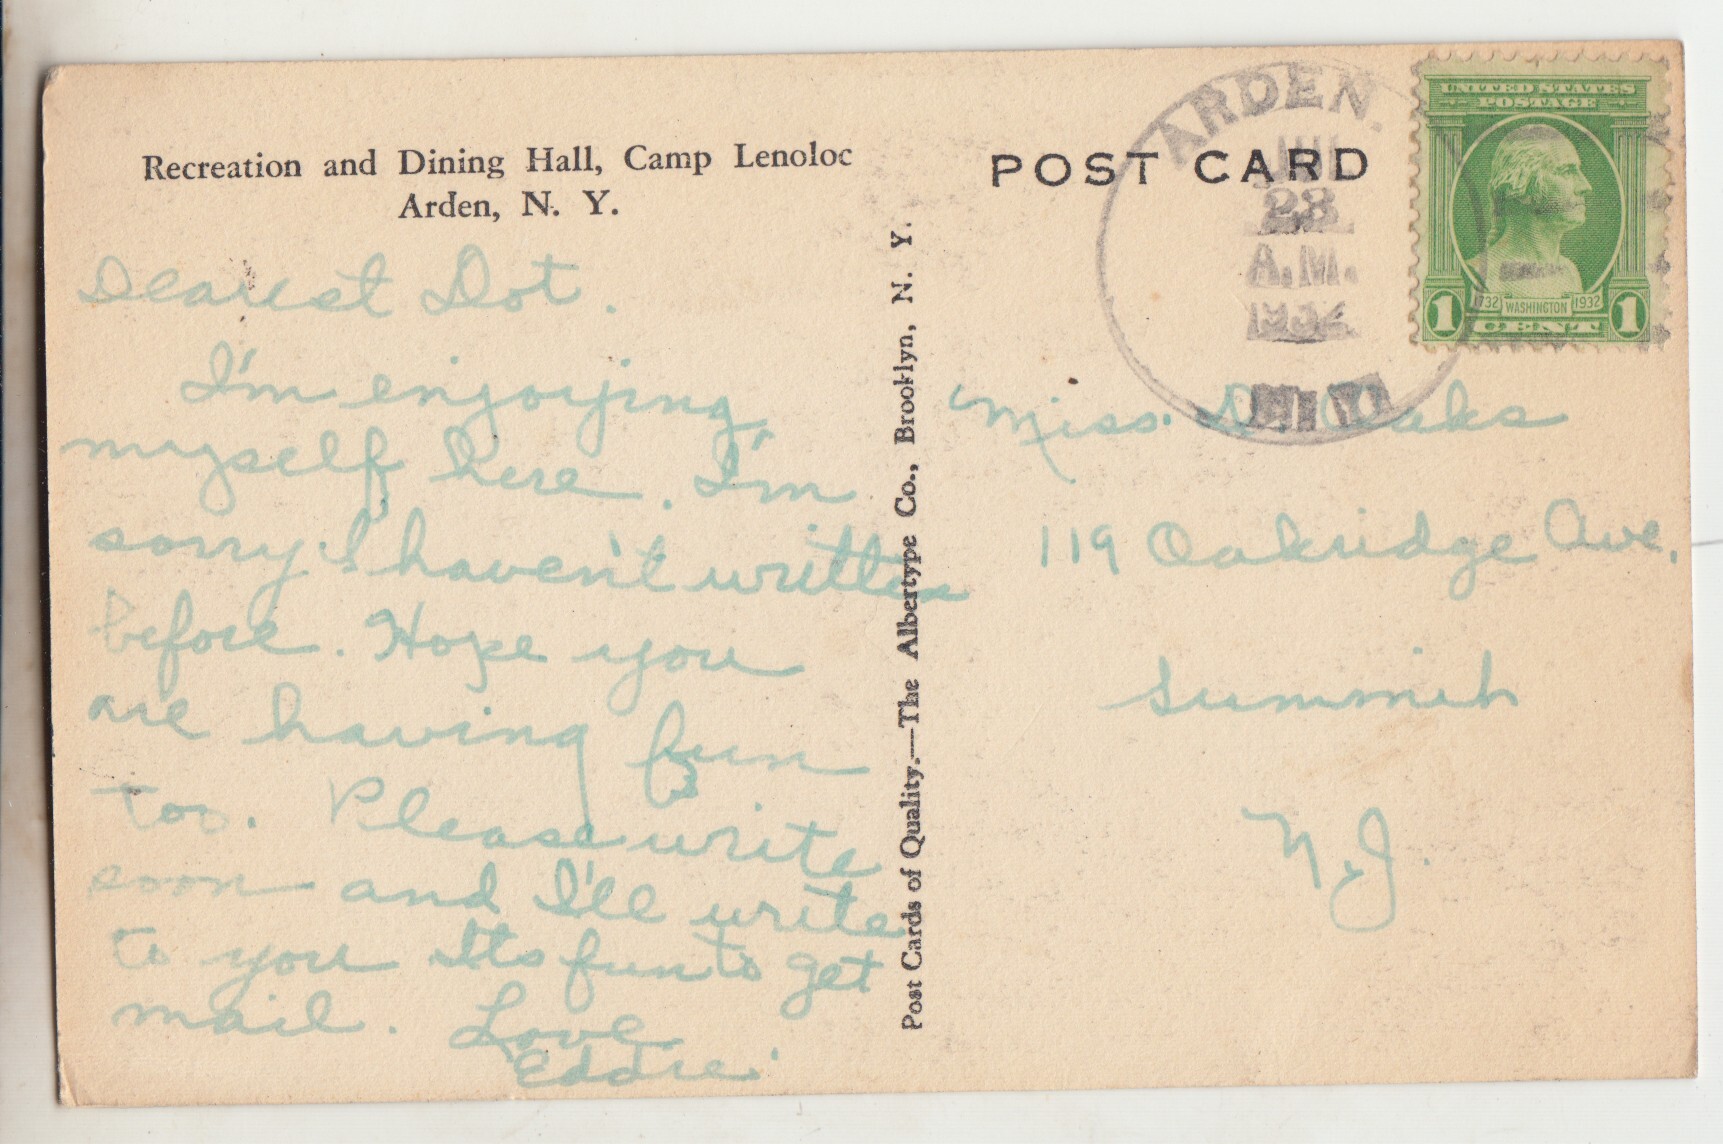 Recreation and Dining Hall, Camp Lenoloc
Arden, N. Y.
Dearest Dot.
I'm enjoying
myself here. I'm
sorry I haven't written
before. Hope you
are having fun
too. Please write
soon and I'll write
to you Its fun to get
mail. Love
Eddie
Post Cards of Quality.—The Albertype Co., Brooklyn, N. Y.
POST CARD
ARDEN.
23
A.M.
1932
N.Y.
UNITED STATES
POSTAGE
1732 WASHINGTON 1932
1 CENT 1
Miss. D. Oaks
119 Oakridge Ave.
Summit
N.J.